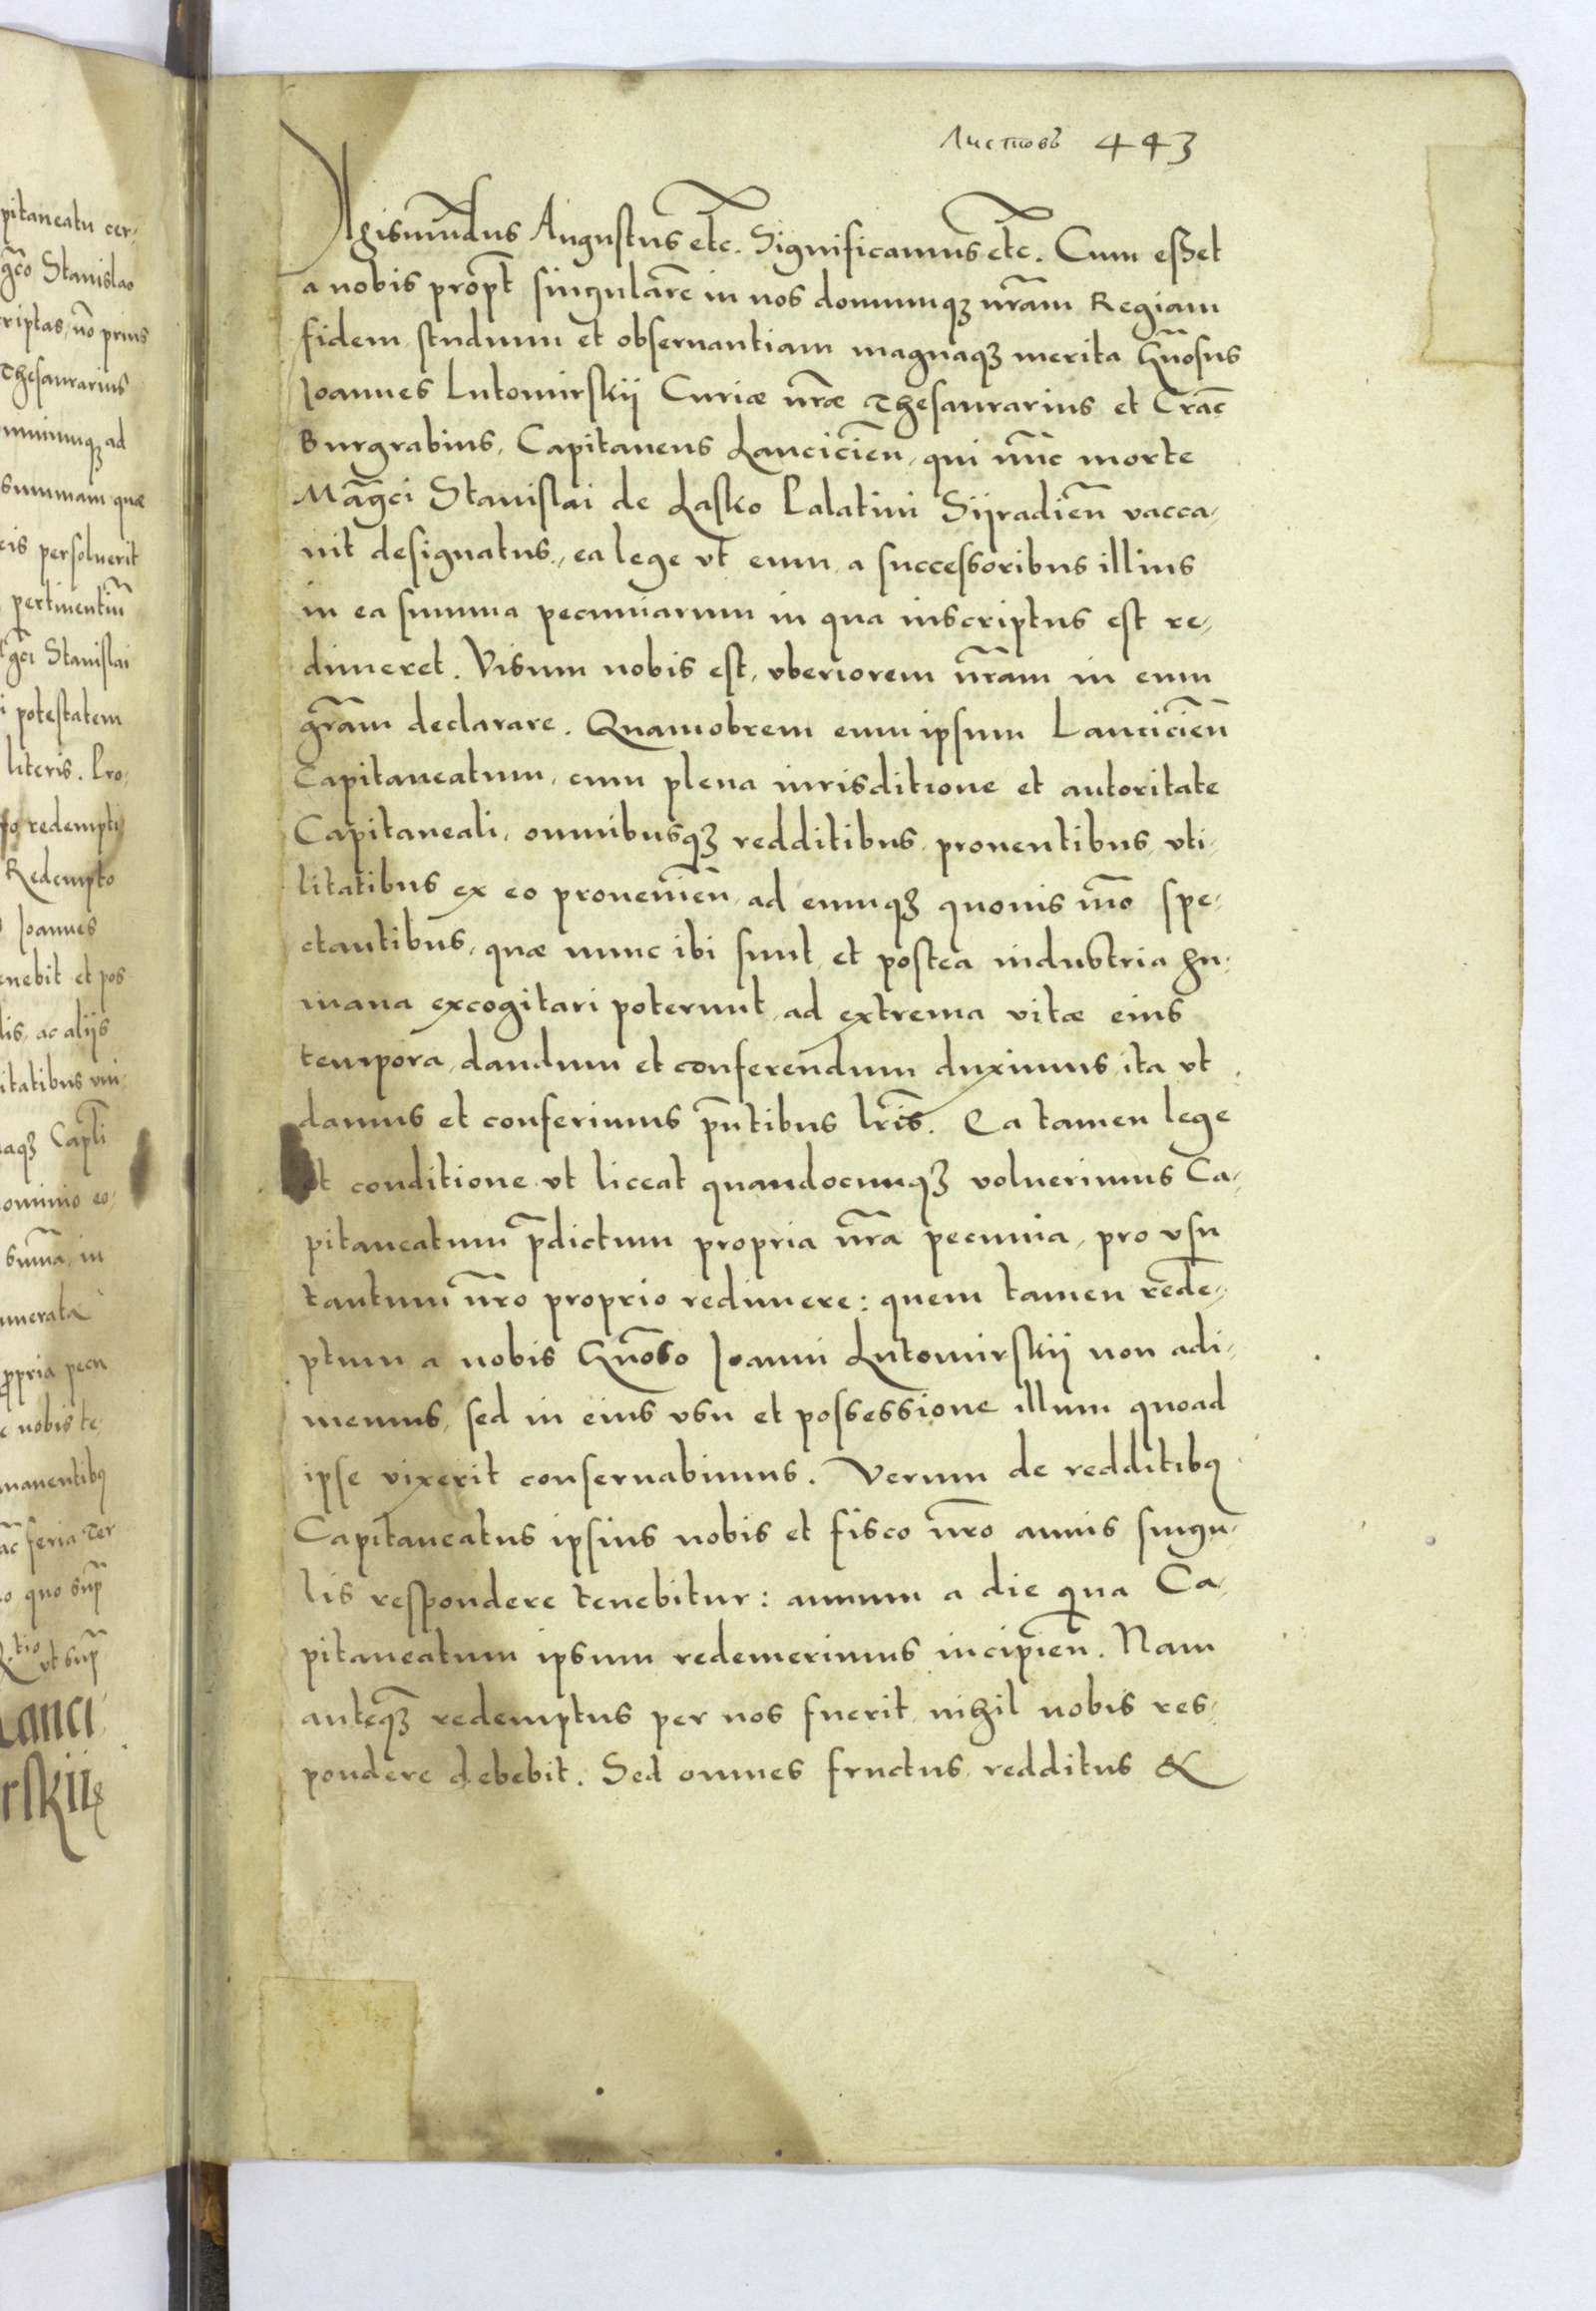 Листовъ 443
pitaneatu cer-
gc̃o Stanislao
criptas, nõ prius
Thesaurarius
ominumqꝫ ad
summam quæ
eis persoluerit
pertinentiũ
gc̃i Stanislai
i potestatem
literis. Pro-
so redempti
Redempto
Joannes
enebit et pos
lis, ac alijs
itatibus vni-
aqꝫ Capl̃i
ominio eo-
summã, in
umerata
ꝓpria pecu
e nobis te-
manentibꝰ
ac̃ feria Ter
o quo sup̃
R.tio vt sup̃
Lanci-
rskii
Sigismũdus Augustus etc. Significamus etc. Cum esset
a nobis propt̃ singularẽ in nos domumqꝫ nrãm Regiam
fidem, studium et obseruantiam magnaqꝫ merita Gñosus
Joannes Lutomirskij Curiæ nrãe Thesaurarius et Crac̃
Burgrabius, Capitaneus Lancicieñ, qui nũc morte
Mag̃ci Stanislai de Lasko Palatini Sijradieñ vacca-
uit designatus, ea lege vt eum a successoribus illius
in ea summa pecuniarum in qua inscriptus est re-
dimeret. Visum nobis est, vberiorem nrãm in eum
grãm declarare. Quamobrem eum ipsum Lancicieñ
Capitaneatum, cum plena iurisditione et autoritate
Capitaneali, omnibusqꝫ redditibus, prouentibus, vti-
litatibus ex eo prouenieñ, ad eumqꝫ quouis mõ spe-
ctantibus, quæ nunc ibi sunt, et postea industria hu-
mana excogitari poterunt, ad extrema vitæ eius
tempora, dandum et conferendum duximus, ita vt
damus et conferimus pñtibus lrĩs. Ea tamen lege
et conditione vt liceat quandocunqꝫ voluerimus Ca-
pitaneatum p̃dictum propria nrã pecunia, pro vsu
tantum nrõ proprio redimere: quem tamen redẽ-
ptum a nobis Gñoso Joanni Lutomirskij non adi-
memus, sed in eius vsu et possessione illum quoad
ipse vixerit conseruabimus. Verum de redditibꝰ
Capitaneatus ipsius nobis et fisco nrõ annis singu-
lis respondere tenebitur: annum a die qua Ca-
pitaneatum ipsum redemerimus incipieñ. Nam
anteqꝫ̃ redemptus per nos fuerit, nihil nobis res-
pondere debebit. Sed omnes fructus, redditus &